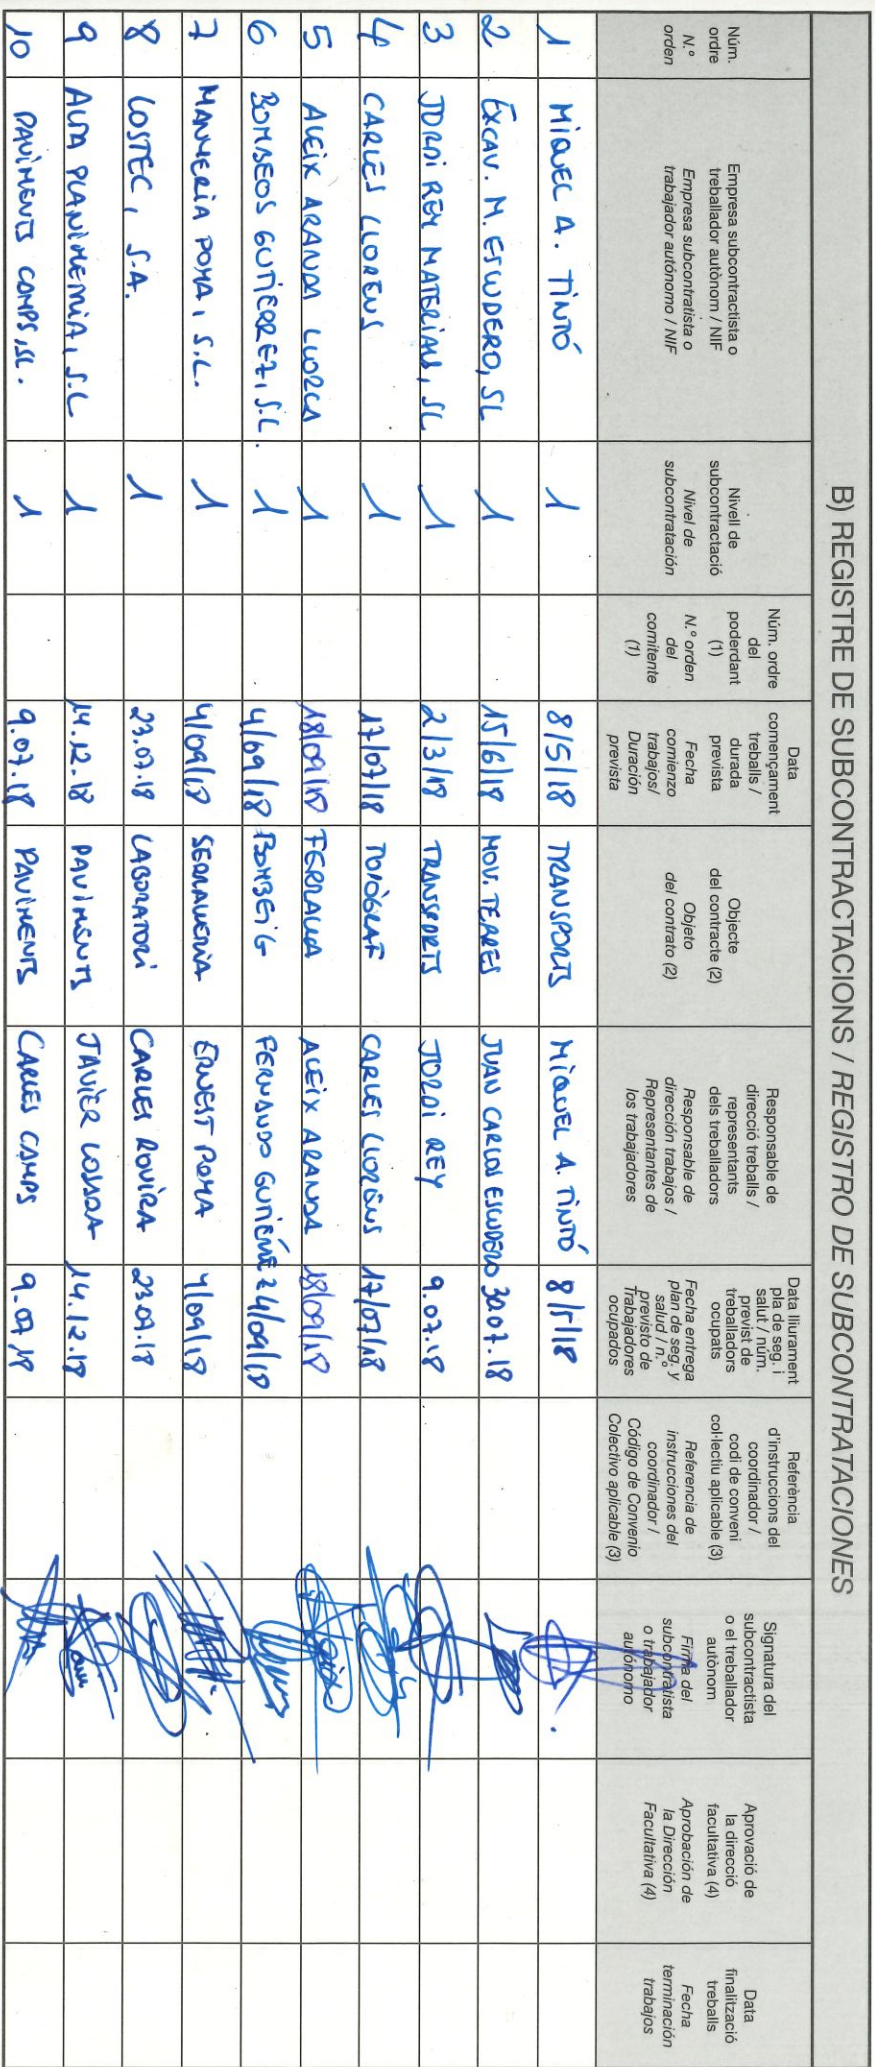 B) REGISTRE DE SUBCONTRACTACIONS / REGISTRO DE SUBCONTRATACIONES
Núm.
ordre
N.º
orden
Empresa subcontractista o
treballador autònom / NIF
Empresa subcontratista o
trabajador autónomo / NIF
Nivell de
subcontractació
Nivel de
subcontratación
Núm. ordre
del
poderdant
(1)
N.º orden
del
comitente
(1)
Data
començament
treballs /
durada
prevista
Fecha
comienzo
trabajos/
Duración
prevista
Objecte
del contracte (2)
Objeto
del contrato (2)
Responsable de
direcció treballs /
representants
dels treballadors
Responsable de
dirección trabajos /
Representantes de
los trabajadores
Data lliurament
pla de seg. i
salut / núm.
previst de
treballadors
ocupats
Fecha entrega
plan de seg. y
salud / n.º
previsto de
Trabajadores
ocupados
Referència
d'instruccions del
coordinador /
codi de conveni
col·lectiu aplicable (3)
Referencia de
instrucciones del
coordinador /
Código de Convenio
Colectivo aplicable (3)
Signatura del
subcontractista
o el treballador
autònom
Firma del
subcontratista
o trabajador
autónomo
Aprovació de
la direcció
facultativa (4)
Aprobación de
la Dirección
Facultativa (4)
Data
finalització
treballs
Fecha
terminación
trabajos
1 MIQUEL A. TINTÓ 1 8/5/18 TRANSPORTS MIQUEL A. TINTÓ 8/5/18
2 EXCAV. M. ESCUDERO, SL 1 15/6/18 MOV. TERRES JUAN CARLOS ESCUDERO 30.07.18
3 JORDI REY MATERIALS, SL 1 2/3/18 TRANSPORTS JORDI REY 9.07.18
4 CARLES LLORENS 1 17/07/18 TOPÒGRAF CARLES LLORENS 17/07/18
5 ALEIX ARANDA LLORCA 1 18/09/18 FERRALLA ALEIX ARANDA 18/09/18
6 BOMBEOS GUTIÉRREZ, S.L. 1 4/09/18 BOMBEIG FERNANDO GUTIÉRREZ 4/09/18
7 MANYERIA POMA, S.L. 1 4/09/18 SERRALLERIA ERNEST POMA 4/09/18
8 LOSTEC, S.A. 1 23.07.18 LABORATORI CARLES ROVIRA 23.07.18
9 ALTA PLANIMETRIA, S.L 1 14.12.18 PAVIMENTS JAVIER 14.12.18
10 PAVIMENTS CAMPS, SL. 1 9.07.18 PAVIMENTS CARLES CAMPS 9.07.18